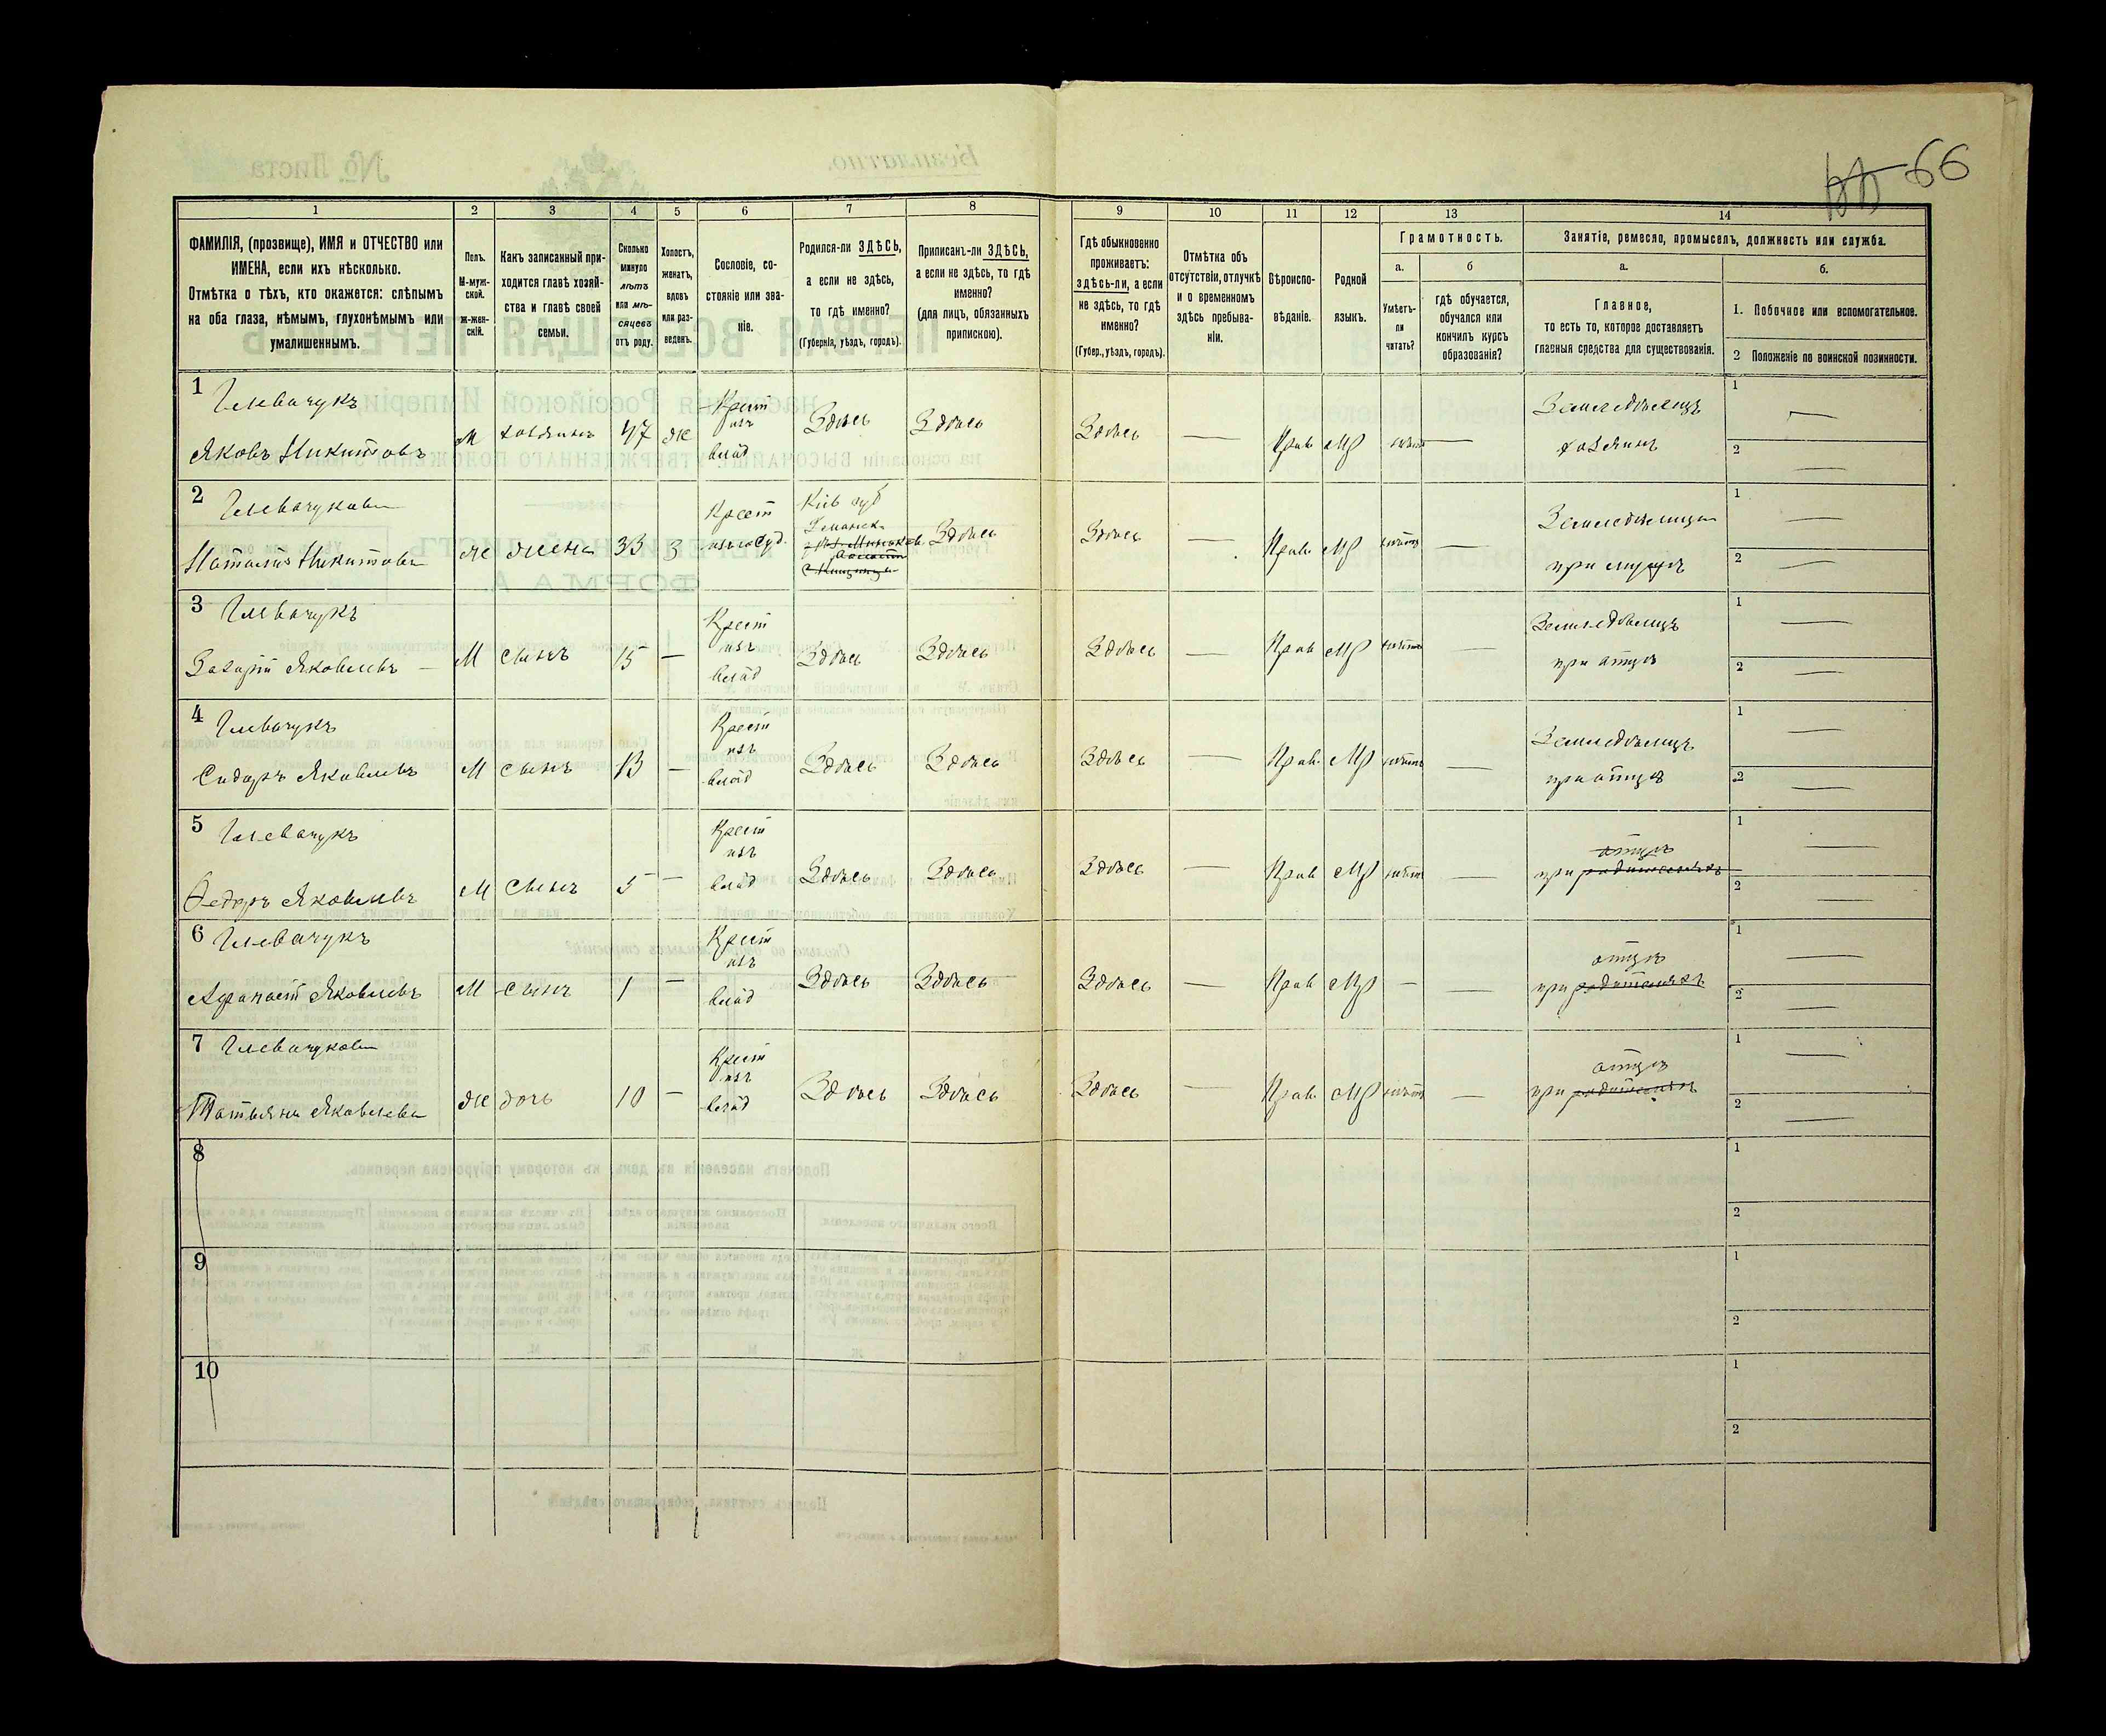 66
1 2 3 4 5 6 7 8 9 10 11 12 13 14
ФАМИЛІЯ, (прозвище), ИМЯ и ОТЧЕСТВО или
ИМЕНА, если ихъ нѣсколько.
Отмѣтка о тѣхъ, кто окажется: слѣпымъ
на оба глаза, нѣмымъ, глухонѣмымъ или
умалишеннымъ.
Полъ.
М-муж-
ской.
Ж-жен-
скій.
Какъ записанный при-
ходится главѣ хозяй-
ства и главѣ своей
семьи.
Сколько
минуло
лѣтъ
или мѣ-
сяцевъ
отъ роду.
Холостъ,
женатъ,
вдовъ
или раз-
веденъ.
Сословіе, со-
стояніе или зва-
ніе.
Родился-ли ЗДѢСЬ,
а если не здѣсь,
то гдѣ именно?
(Губернія, уѣздъ, городъ).
Приписанъ-ли ЗДѢСЬ,
а если не здѣсь, то гдѣ
именно?
(для лицъ, обязанныхъ
припискою).
Гдѣ обыкновенно
проживаетъ:
здѣсь-ли, а если
не здѣсь, то гдѣ
именно?
(Губер., уѣздъ, городъ).
Отмѣтка объ
отсутствіи, отлучкѣ
и о временномъ
здѣсь пребыва-
ніи.
Вѣроиспо-
вѣданіе.
Родной
языкъ.
Грамотность.
а.
Умѣетъ-
ли
читать?
б
гдѣ обучается,
обучался или
кончилъ курсъ
образованія?
Занятіе, ремесло, промыселъ, должность или служба.
а.
Главное,
то есть то, которое доставляетъ
главныя средства для существованія.
б.
1. Побочное или вспомогательное.
2 Положеніе по воинской повинности.
1 Глевачукъ
Яковъ Никитовъ
М хозяинъ 47 же
Крест
изъ
влад
Здѣсь Здѣсь Здѣсь — Прав Мр — Земледѣлецъ
хозяинъ
1 —
2 —
2 Глевачукова
Наталія Никитова
Ж жена 33 З
Крест
Кіів губ
Здѣсь Здѣсь — Прав Мр — Земледѣлица
при мужѣ
1 —
2 —
3 Глевачукъ
Захарій Яковлевъ —
М сынъ 15 —
Крест
изъ
влад
Здѣсь Здѣсь Здѣсь — Прав Мр — Земледѣлецъ
при отцѣ
1 —
2 —
4 Глевачукъ
Сидоръ Яковлевъ
М сынъ 13 —
Крест
изъ
влад
Здѣсь Здѣсь Здѣсь — Прав Мр — Земледѣлецъ
при отцѣ
1 —
2 —
5 Глевачукъ
Федоръ Яковлевъ
М сынъ 5 —
Крест
изъ
влад
Здѣсь Здѣсь Здѣсь — Прав Мр — отцѣ
при родителяхъ
1 —
2 —
6 Глевачукъ
Афанасій Яковлевъ
М сынъ 1 —
Крест
изъ
влад
Здѣсь Здѣсь Здѣсь — Прав Мр — — отцѣ
при родителяхъ
1 —
2 —
7 Глевачукова
Татьяна Яковлева
Ж дочь 10 —
Крест
изъ
влад
Здѣсь Здѣсь Здѣсь — Прав Мр — отцѣ
при родителяхъ
1 —
2 —
8
1
2
9
1
2
10
1
2